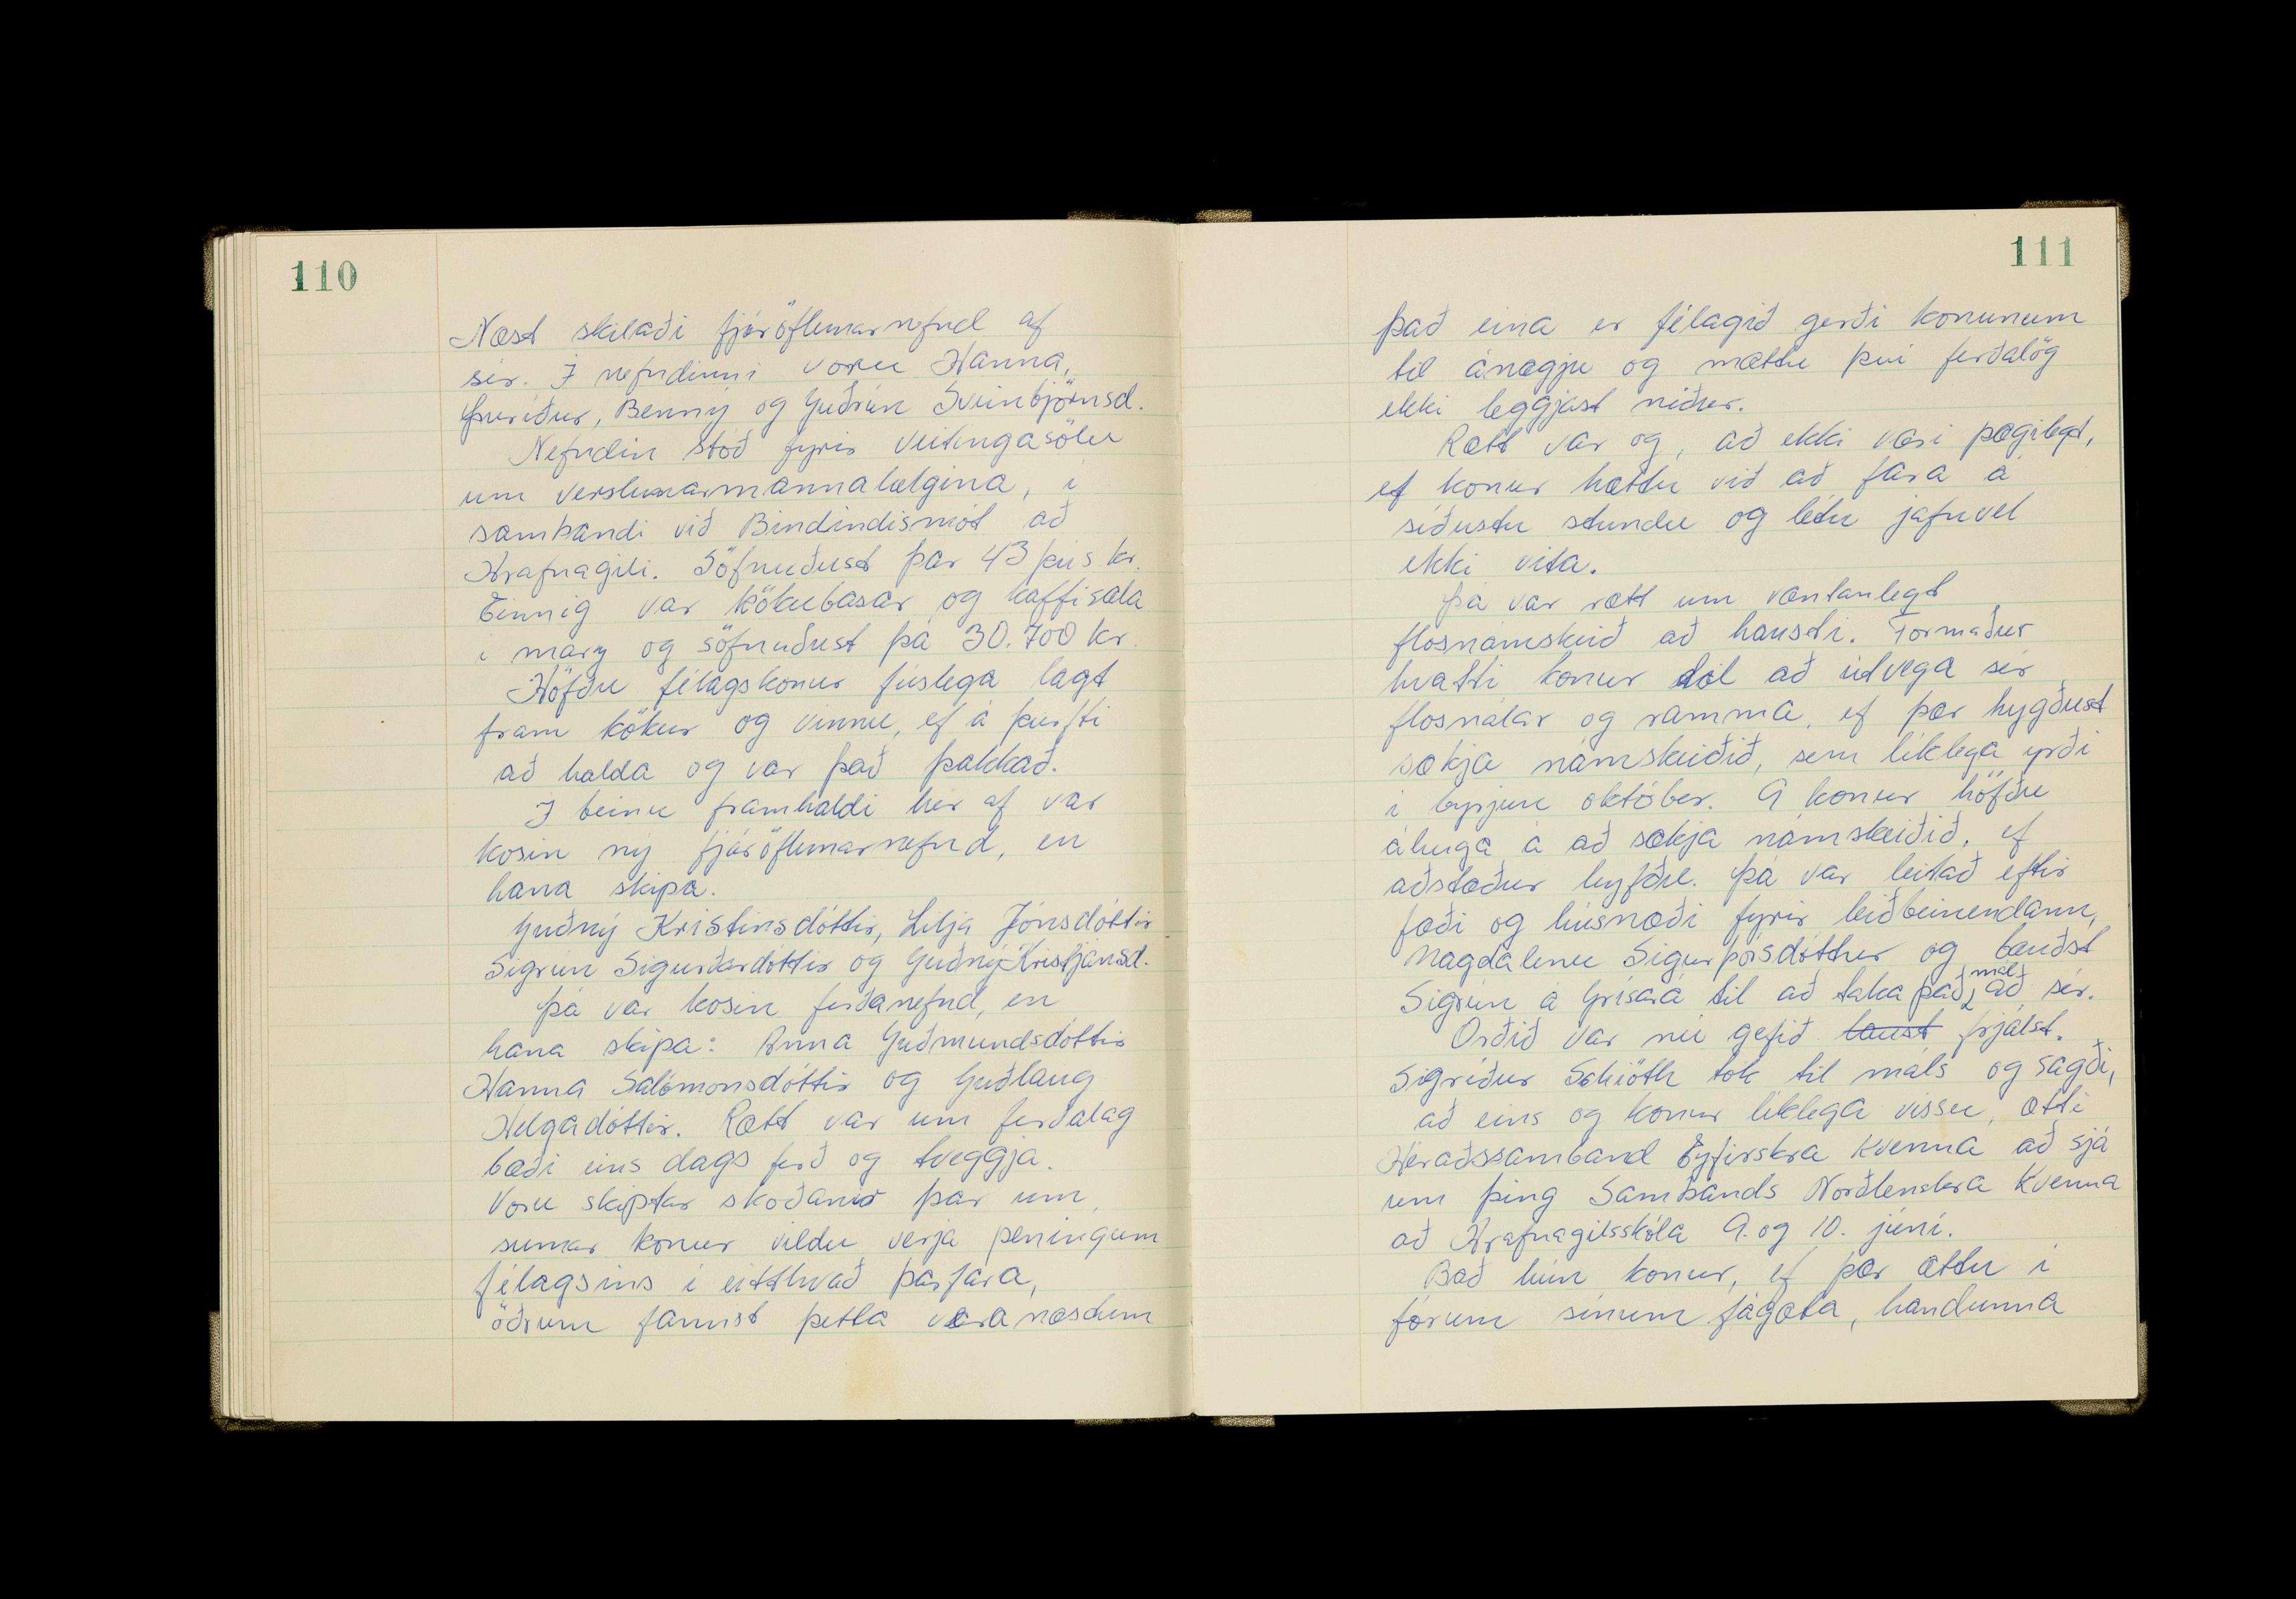 110
Næst skilaði fjáröflunarnefnd af
sér. Í nefndinni voru Hanna,
Þuríður, Benny og Guðrún Sveinbjörnsd.
Nefndin stóð fyrir veitingasölu
um verslunarmannahelgina, í
sambandi við Bindindismót að
Hrafnagili. Söfnuðust þar 43 þús kr.
Einnig var kökubasar og kaffisala
í mars og söfnuðust þá 30.700 kr.
Höfðu félagskonur fúslega lagt
fram kökur og vinnu, ef á þurfti
að halda og var það þakkað.
Í beinu framhaldi hér af var
kosin ný fjáröflunarnefnd, en
hana skipa.
Guðný Kristinsdóttir, Lilja Jónsdóttir
Sigrún Sigurðardóttir og Guðný Kristjánsd.
Þá var kosin ferðanefnd, en
hana skipa: Anna Guðmundsdóttir
Hanna Salómonsdóttir og Guðlaug
Helgadóttir. Rætt var um ferðalag
bæði eins dags ferð og tveggja.
Voru skiptar skoðanir þar um,
sumar konur vildu verja peningum
félagsins í eitthvað þarfara,
öðrum fannst þetta vera næstum
111
það eina er félagið gerði konunum
til ánægju og mættu því ferðalög
ekki leggjast niður.
Rætt var og, að ekki væri þægilegt,
ef konur hættu við að fara á
síðustu stundu og létu jafnvel
ekki vita.
Þá var rætt um væntanlegt
flosnámskeið að hausti. Formaður
hvatti konur til að útvega sér
flosnálar og ramma, ef þær hygðust
sækja námskeiðið, sem líklega yrði
í byrjun október. 9 konur höfðu
áhuga á að sækja námskeiðið, ef
aðstæður leyfðu. Þá var leitað eftir
fæði og húsnæði fyrir leiðbeinendann,
Magdalenu Sigurþórsdóttur og bauðst
Sigrún á Grísará til að taka það mál að sér.
Orðið var nú gefið laust frjálst.
Sigríður Schiöth tók til máls og sagði,
að eins og konur líklega vissu, ætti
Héraðssamband Eyfirskra kvenna að sjá
um þing Sambands Norðlenskra Kvenna
að Hrafnagilsskóla 9. og 10. júní.
Bað hún konur, ef þær ættu í
fórum sínum fágæta, handunna